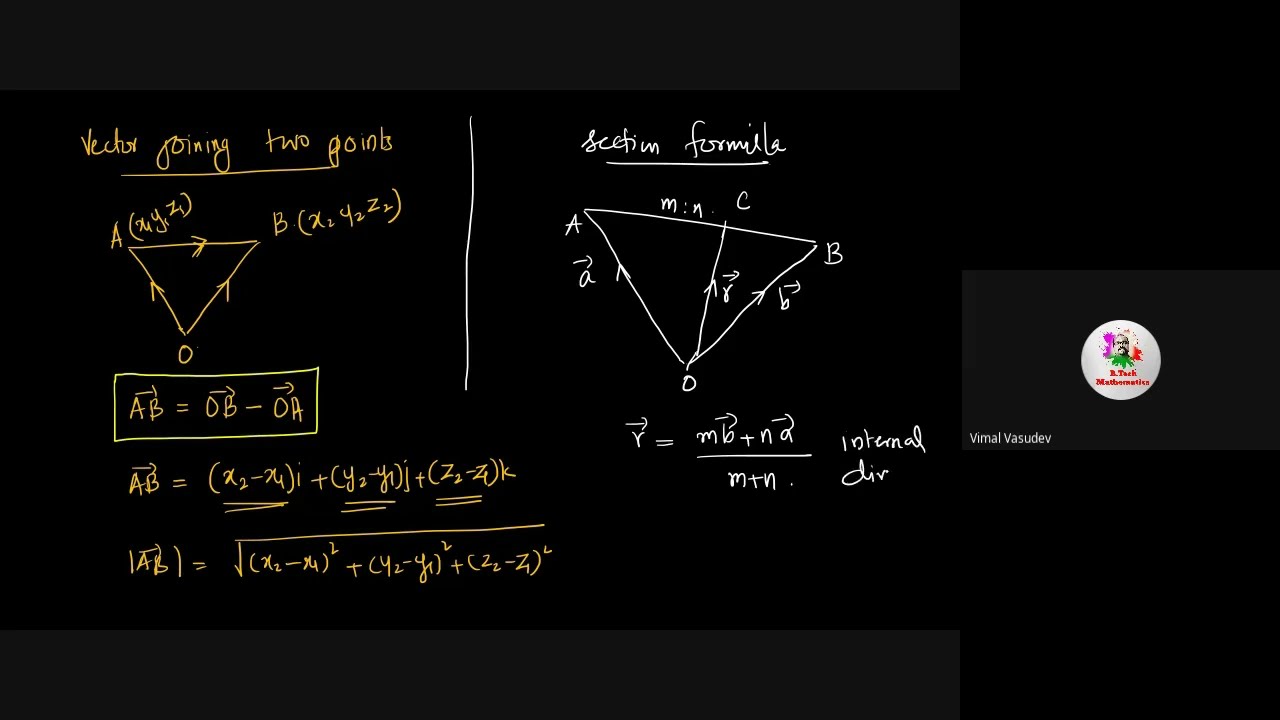 Vector joining two points
A (x₁ y₁ z₁)
B. (x₂ y₂ z₂)
O
AB⃗ = OB⃗ − OA⃗
AB⃗ = (x₂−x₁)i + (y₂−y₁)j + (z₂−z₁)k
|AB⃗| = √(x₂−x₁)² + (y₂−y₁)² + (z₂−z₁)²
section formilla
m:n. C
A
B
a⃗
r⃗
b⃗
O
r⃗ = mb⃗ + na⃗ internal
m+n. div
B.Tech
Mathematics
Vimal Vasudev